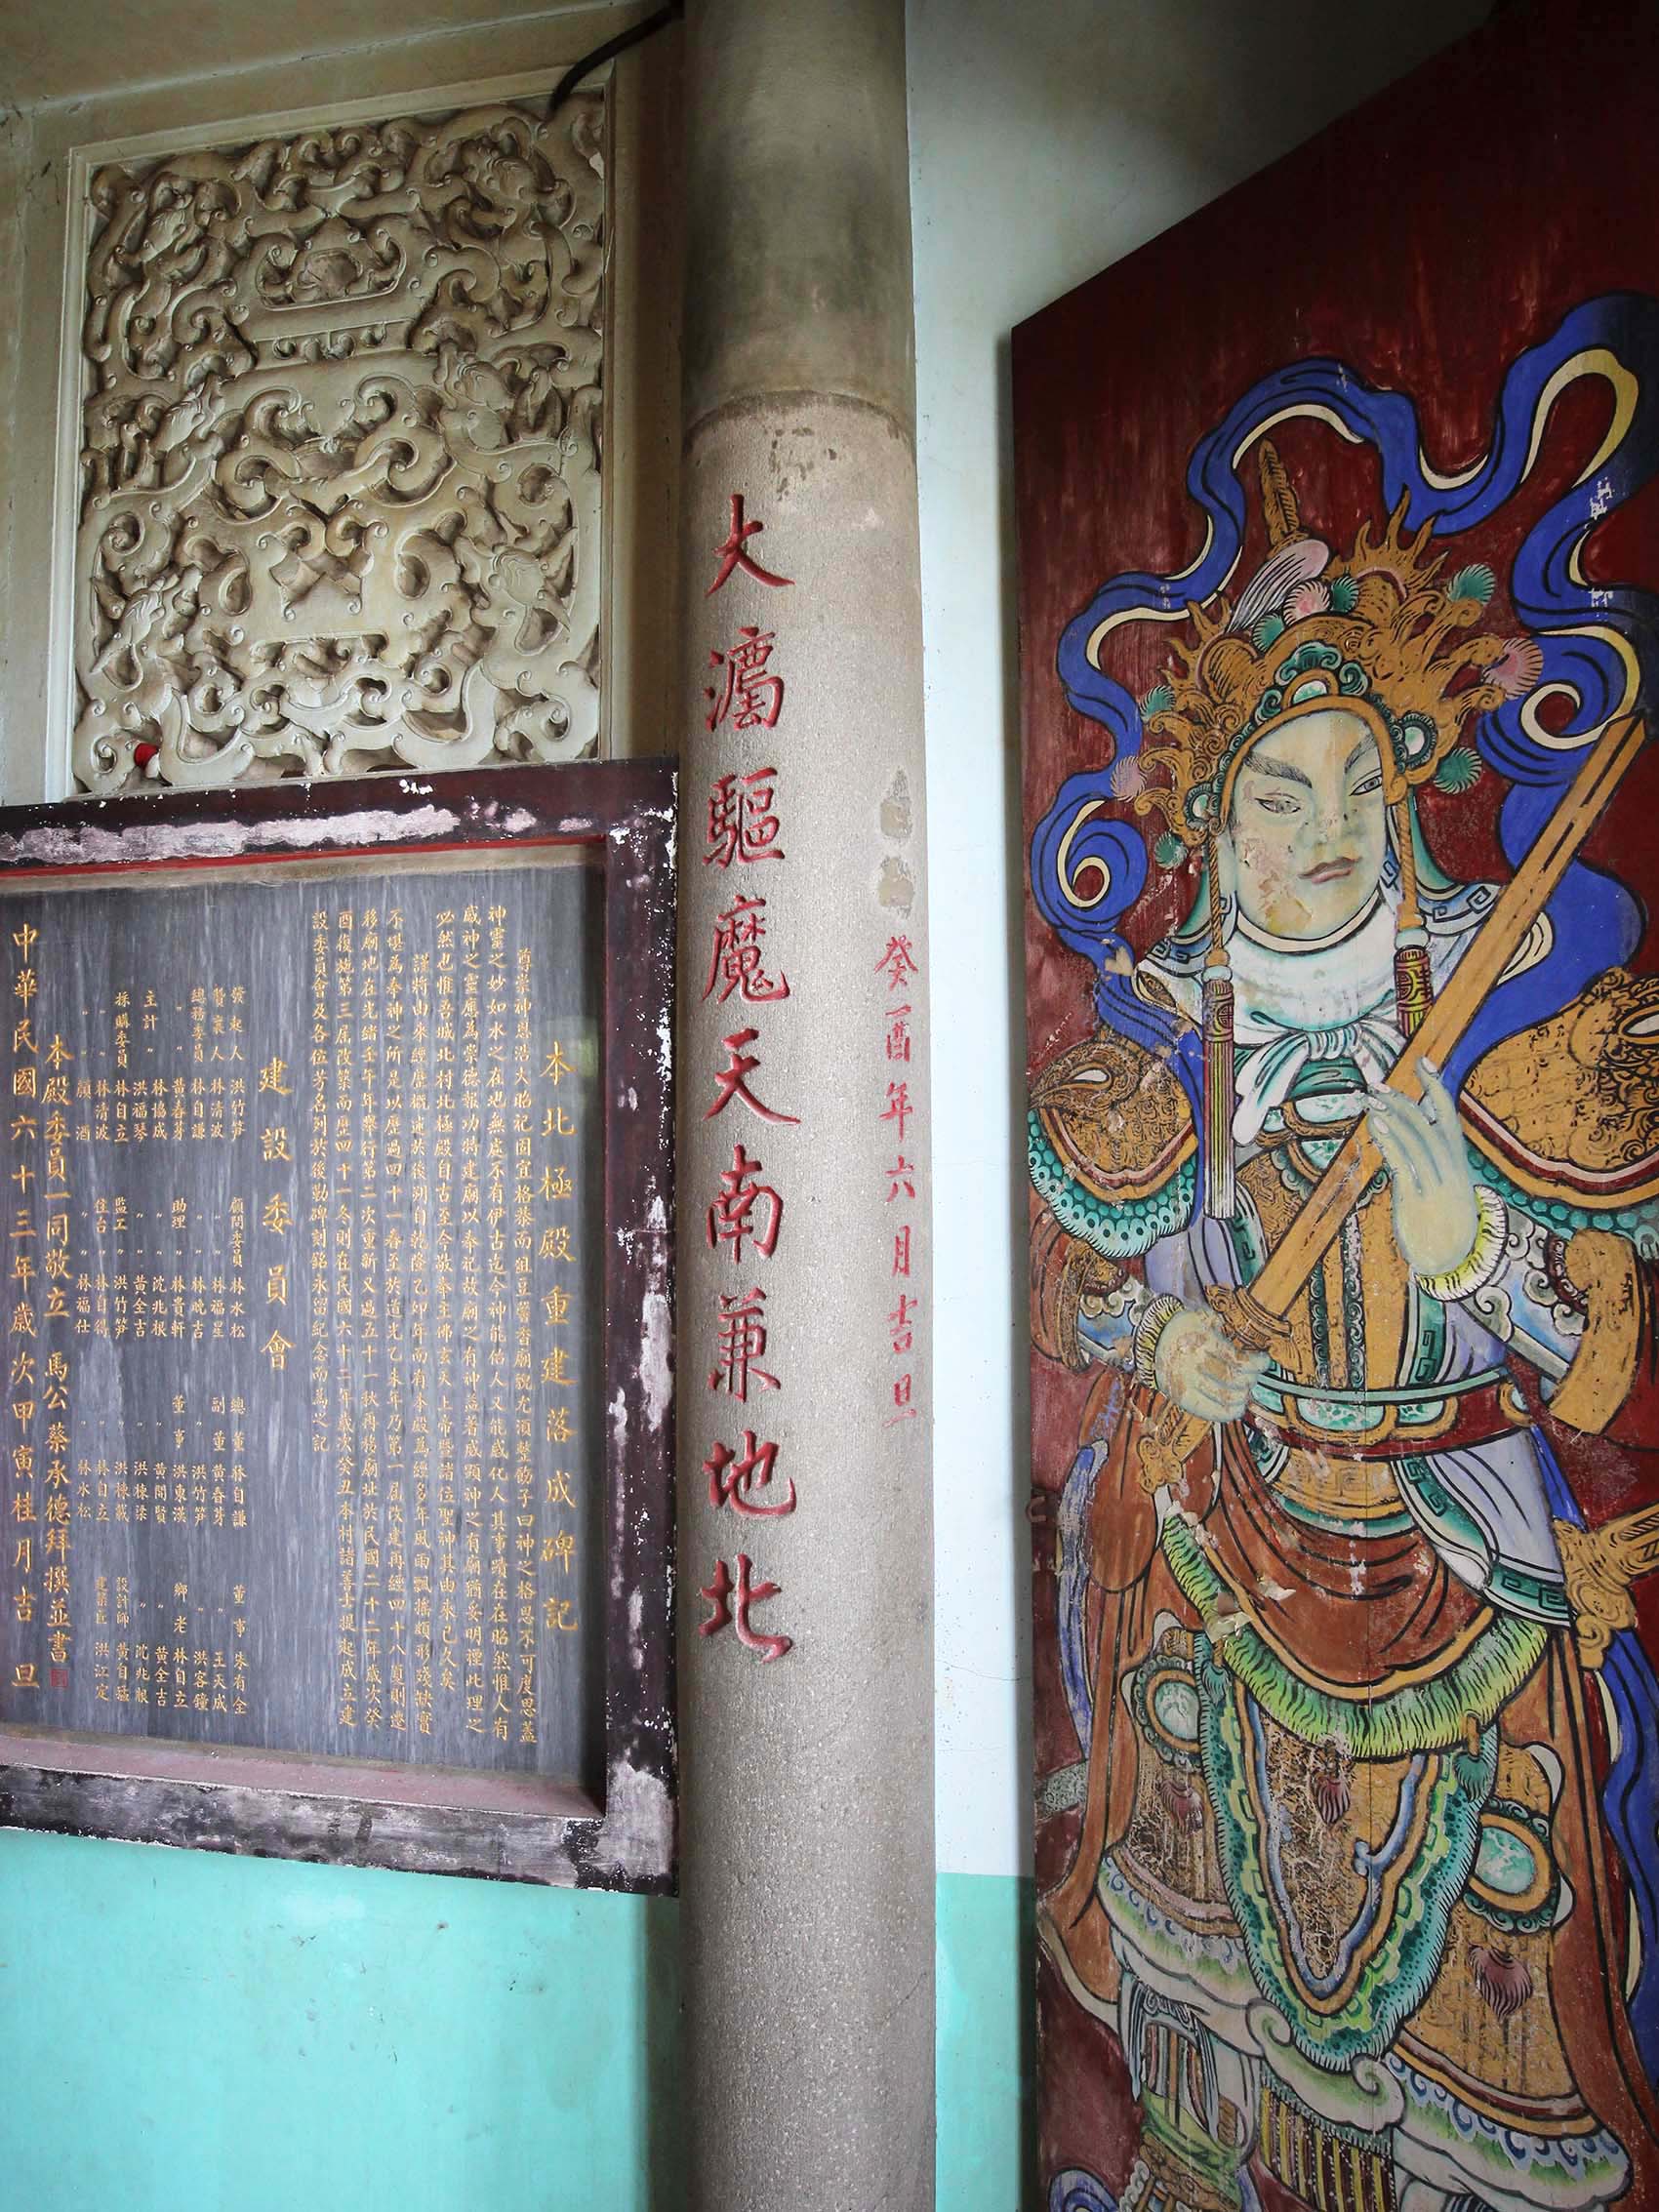 大瀉驅魔天南兼地北
癸酉年六月吉旦
本北極殿重建落成碑記
尊崇神恩浩大昭祀固宜格恭而俎豆馨香廟貌尤須整飭子曰神之格思不可度思蓋
神靈之妙如水之在地無處不有伊古迄今神能佑人又能感化人其事蹟在在昭然惟人有
感神之靈應為崇德報功特建廟以奉祀故廟之有神益著威顯神之有廟猶妥明禋此理之
必然也惟吾城北村北極殿自古至今敬奉主佛玄天上帝暨諸位聖神其由來已久矣
謹將由來經歷概述於後朔自乾隆乙卯年而有本殿焉經多年風雨飄搖頹形殘缺實
不堪為奉神之所是以歷過四十一春至於道光乙未年乃第一屆改建再經四十八夏則遷
移廟地在光緒壬午年舉行第二次重新又過五十一秋再移廟址於民國二十二年歲次癸
酉復施第三屆改築而歷四十一冬則在民國六十二年歲次癸丑本村諸善士提起成立建
設委員會及各位芳名列於後勒碑刻銘永留紀念而為之記
建設委員會
發起人 洪竹笋 顧問委員 林水松 總董 林自謙 董事 朱有全
贊襄人 林清波 〃 林福星 副董 黃春芽 〃 王天成
總務委員 林自謙 〃 林晚吉 〃 洪竹笋 〃 洪客鐘
〃 黃春芽 助理 林貴軒 董事 洪東漢 鄉老 林自立
主計 林協成 〃 沈兆根 〃 黃問賢 〃 黃全吉
〃 洪福琴 〃 黃全吉 〃 洪棟樑 〃 沈兆根
採購委員 林自立 監工 洪竹笋 〃 洪棟戴 設計師 黃自猛
〃 林清波 住吉 林自得 〃 林自立 建築匠 洪江定
〃 顏酒 〃 林福仕 〃 林水松
本殿委員一同敬立 馬公蔡承德拜撰並書
中華民國六十三年歲次甲寅桂月吉旦